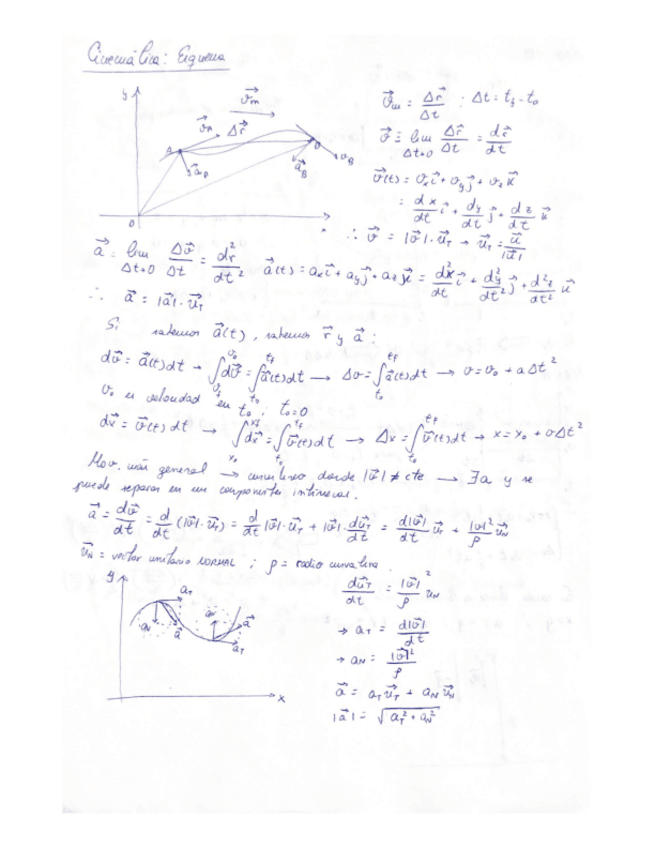 Cinemática: Esquema
y
v⃗m
v⃗A Δr⃗
A B
a⃗A a⃗B v⃗B
0
v⃗m = Δr⃗/Δt ; Δt = tf - t0
v⃗ ≡ lim Δt→0 Δr⃗/Δt = dr⃗/dt
v⃗(t) = vx i⃗ + vy j⃗ + vz k⃗
= dx/dt i⃗ + dy/dt j⃗ + dz/dt k⃗
∴ v⃗ = |v⃗|·u⃗T → u⃗T = u⃗/|u⃗|
a⃗ = lim Δt→0 Δv⃗/Δt = d²r/dt² a⃗(t) = ax i⃗ + ay j⃗ + az k⃗ = d²x/dt i⃗ + d²y/dt² j⃗ + d²z/dt² k⃗
∴ a⃗ = |a⃗|·u⃗T
Si sabemos a⃗(t), sabemos r⃗ y a⃗:
dv⃗ = a⃗(t)dt → ∫dv⃗ = ∫a⃗(t)dt → Δv = ∫a⃗(t)dt → v = v0 + aΔt²
v0 es velocidad en t0 ; t0=0
dx⃗ = v⃗(t)dt → ∫dx⃗ = ∫v⃗(t)dt → Δx = ∫v⃗(t)dt → x = x0 + vΔt²
Mov. más general → curvilíneo, donde |v⃗| ≠ cte → ∃a y se
puede separar en sus componentes intrínsecas.
a⃗ = dv⃗/dt = d/dt (|v⃗|·u⃗T) = d/dt |v⃗|·u⃗T + |v⃗|·du⃗T/dt = d|v⃗|/dt u⃗T + |v|²/ρ u⃗N
u⃗N = vector unitario NORMAL ; ρ = radio curvatura.
y
aT
aN a⃗
aN a⃗
aT
x
du⃗T/dt = |v⃗|²/ρ uN
→ aT = d|v⃗|/dt
→ aN = |v⃗|²/ρ
a⃗ = aT u⃗T + aN u⃗N
|a⃗| = √(aT² + aN²)